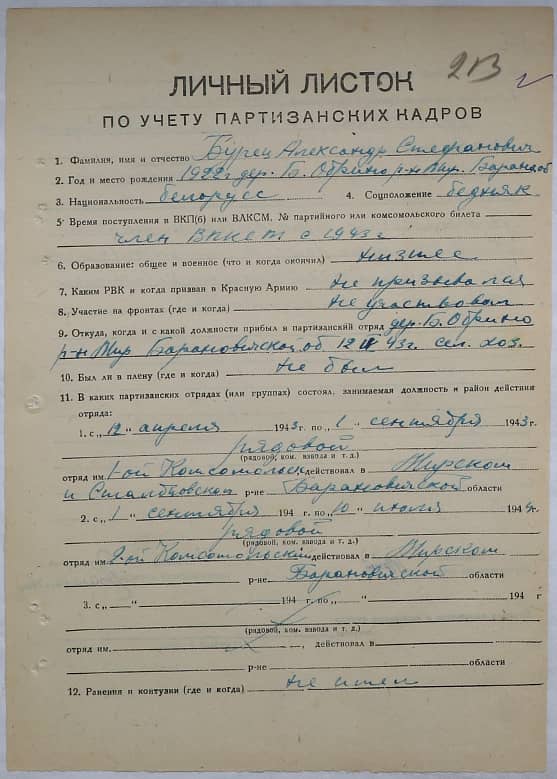 213
ЛИЧНЫЙ ЛИСТОК
ПО УЧЕТУ ПАРТИЗАНСКИХ КАДРОВ
1. Фамилия, имя и отчество Бурец Александр Стефанович
2. Год и место рождения 1922 г дер. Б. Обрино р-н Мир. Баранов. об
3. Национальность белорусс 4. Соцположение бедняк
5. Время поступления в ВКП(б) или ВЛКСМ, № партийного или комсомольского билета
член ВЛКСМ с 1943 г
6. Образование: общее и военное (что и когда окончил) низшее
7. Каким РВК и когда призван в Красную Армию не призывался
8. Участие на фронтах (где и когда) не участвовал
9. Откуда, когда и с какой должности прибыл в партизанский отряд дер. Б. Обрино
р-н Мир Барановичской об 12 IV 43 г. сел. хоз.
10. Был ли в плену (где и когда) не был
11. В каких партизанских отрядах (или группах) состоял, занимаемая должность и район действия
отряда:
1. с „12" апреля 1943 г. по „1" сентября 1943 г.
рядовой
(рядовой, ком. взвода и т. д.)
отряд им. 1-ой Комсомольск действовал в Мирском
и Столбцовском р-не Барановичской области
2. с „1" сентября 194 г. по „10" июля 1944 г.
рядовой
(рядовой, ком. взвода и т. д.)
отряд им. 2-ой Комсомольский действовал в Мирском
р-не Барановичской области
3. с „ " 194 г. по „ " 194 г
(рядовой, ком. взвода и т. д.)
отряд им. , действовал в
р-не области
12. Ранения и контузии (где и когда) не имел